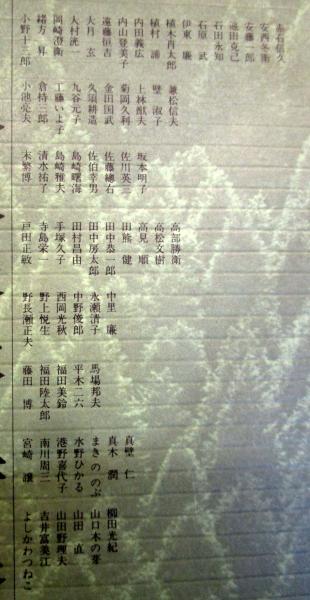 安西冬衛
安藤一郎
池田克己
石田永知
石原武
伊東廉
植木肖太郎
植村浦
内田義広
内山登美子
遠藤恒吉
大月玄
大村洸一
岡崎澄衛
緒方昇
小野十三郎
兼松信夫
壁淑子
上林猷夫
菊岡久利
金田国武
久須耕造
九谷元子
工藤いよ子
倉持三郎
小池亮夫
坂本明子
佐川英三
佐藤總右
佐伯幸男
島崎曙海
島崎雅夫
清水祐子
末繁博一
高部勝衛
高松文樹
高見順
田熊健
田中恭一郎
田中房太郎
田村昌由
手塚久子
寺島栄一
戸田正敏
中里廉
永瀬清子
中野俊郎
西岡光秋
野上悦生
野長瀬正夫
馬場邦夫
平木二六
福田美鈴
福田陸太郎
藤田博
真壁仁
真木潤
まきののぶ
水野ひかる
港野喜代子
南川周三
宮崎譲
柳田光紀
山口木の芽
山田直
山田野理夫
吉井富美江
よしかわつねこ